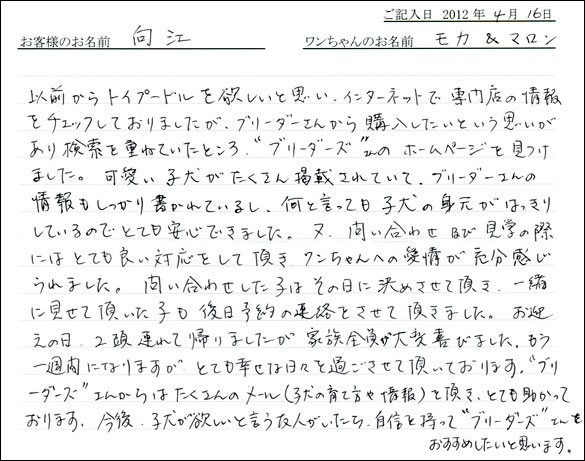 ご記入日 2012 年 4 月 16日
お客様のお名前 向 江 ワンちゃんのお名前 モカ & マロン
以前からトイプードルを欲しいと思い、インターネットで専門店の情報
をチェックしておりましたが、ブリーダーさんから購入したいという思いが
あり検索を重ねていたところ、"ブリーダーズ"さんのホームページを見つけ
ました。可愛い子犬がたくさん掲載されていて、ブリーダーさんの
情報もしっかり書かれているし、何と言っても子犬の身元がはっきり
しているのでとても安心できました。又、問い合わせ及び見学の際
にはとても良い対応をして頂き、ワンちゃんへの愛情が充分感じ
られました。問い合わせした子はその日に決めさせて頂き、一緒
に見せて頂いた子も後日予約の連絡をさせて頂きました。お迎
えの日、2頭連れて帰りましたが家族全員が大変喜びました。もう
一週間になりますが、とても幸せな日々を過ごさせて頂いております。"ブリ
ーダーズ"さんからはたくさんのメール(子犬の育て方や情報)を頂き、とても助かって
おります。今後、子犬が欲しいと言う友人がいたら、自信を持って"ブリーダーズ"さんを
おすすめしたいと思います。